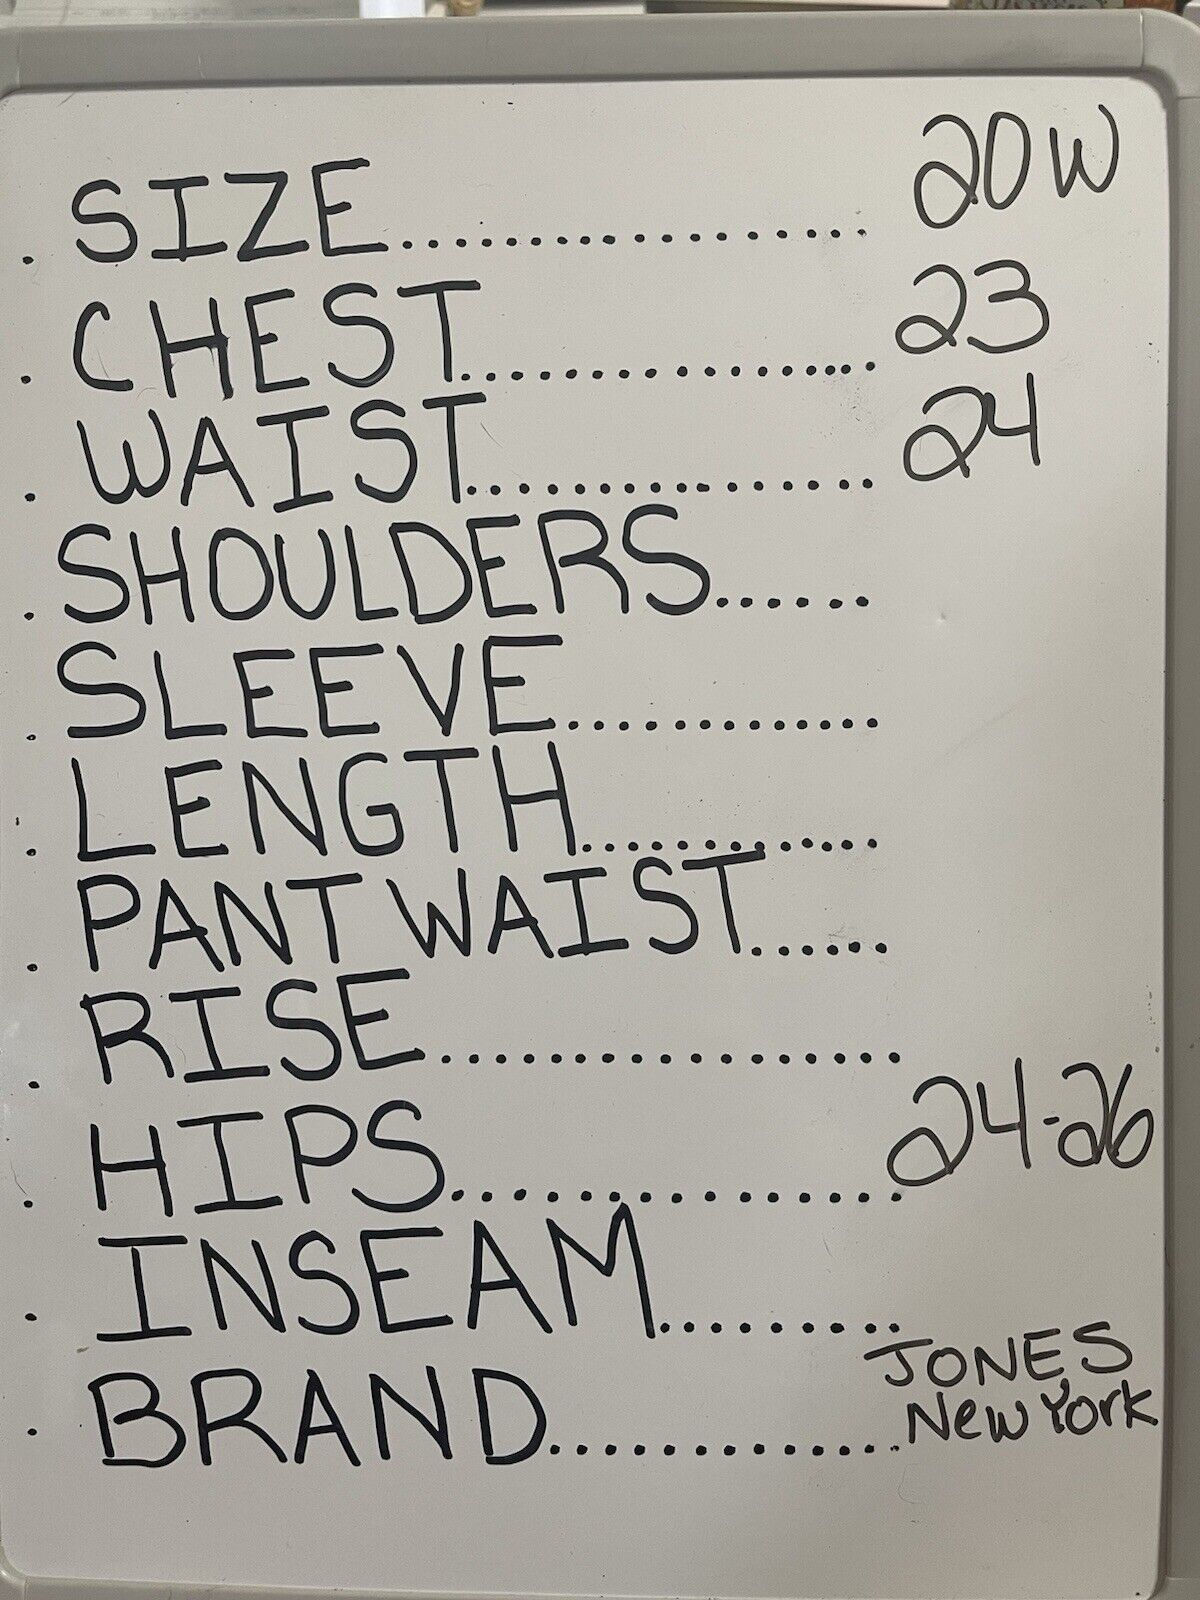 . SIZE.................. 20W
. CHEST................ 23
. WAIST................ 24
. SHOULDERS......
. SLEEVE............
. LENGTH............
. PANT WAIST......
. RISE..................
. HIPS................ 24-26
. INSEAM.........
. BRAND............. JONES
New York